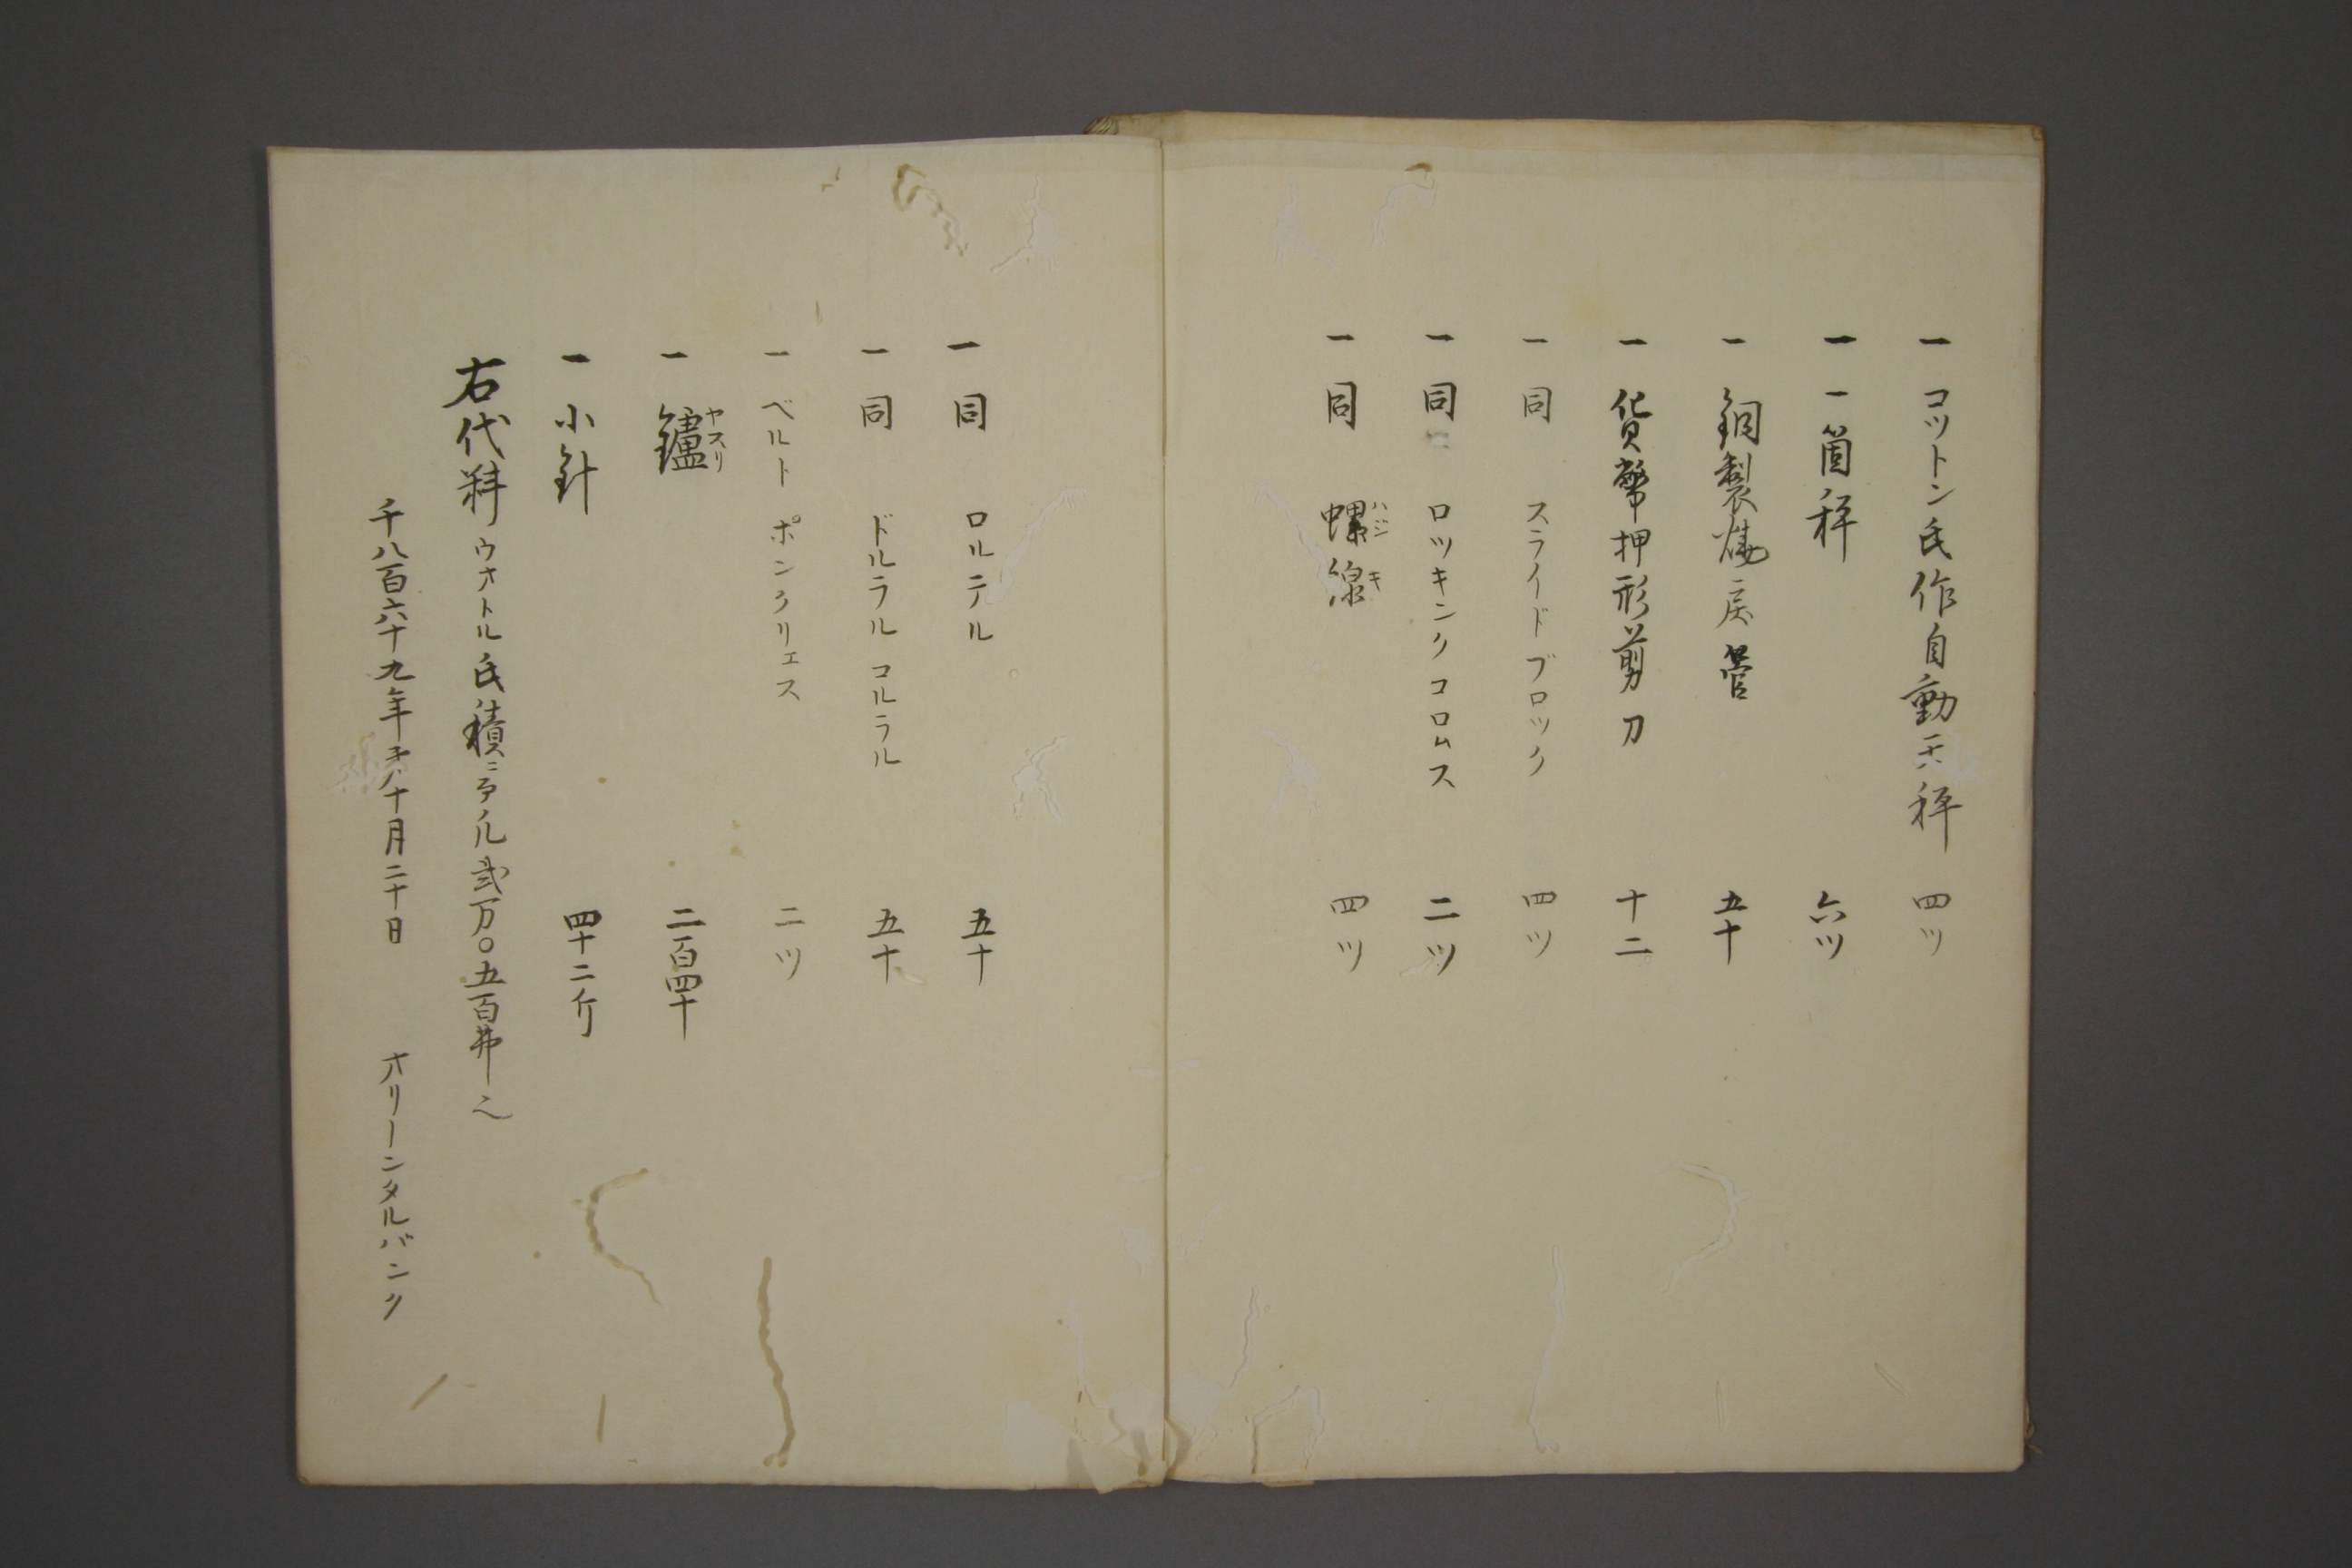 一 コツトン氏作自動天秤 四ツ
一 一箇秤 六ツ
一 銅製 戻管 五十
一 貨幣押形剪刀 十二
一 同 スライドブロツク 四ツ
一 同 ロツキンクコロムス 二ツ
一 同 螺線 ハジキ 四ツ
一 同 ロルテル 五十
一 同 ドルラルコルラル 五十
一 ベルト ポンクリエス 二ツ
一 鑪 ヤスリ 二百四十
一 小針 四十二斤
右代料ウオトル氏積ニテハ凡弐万〇五百弗也
千八百六十九年 第十月二十日 オリーンタルバンク